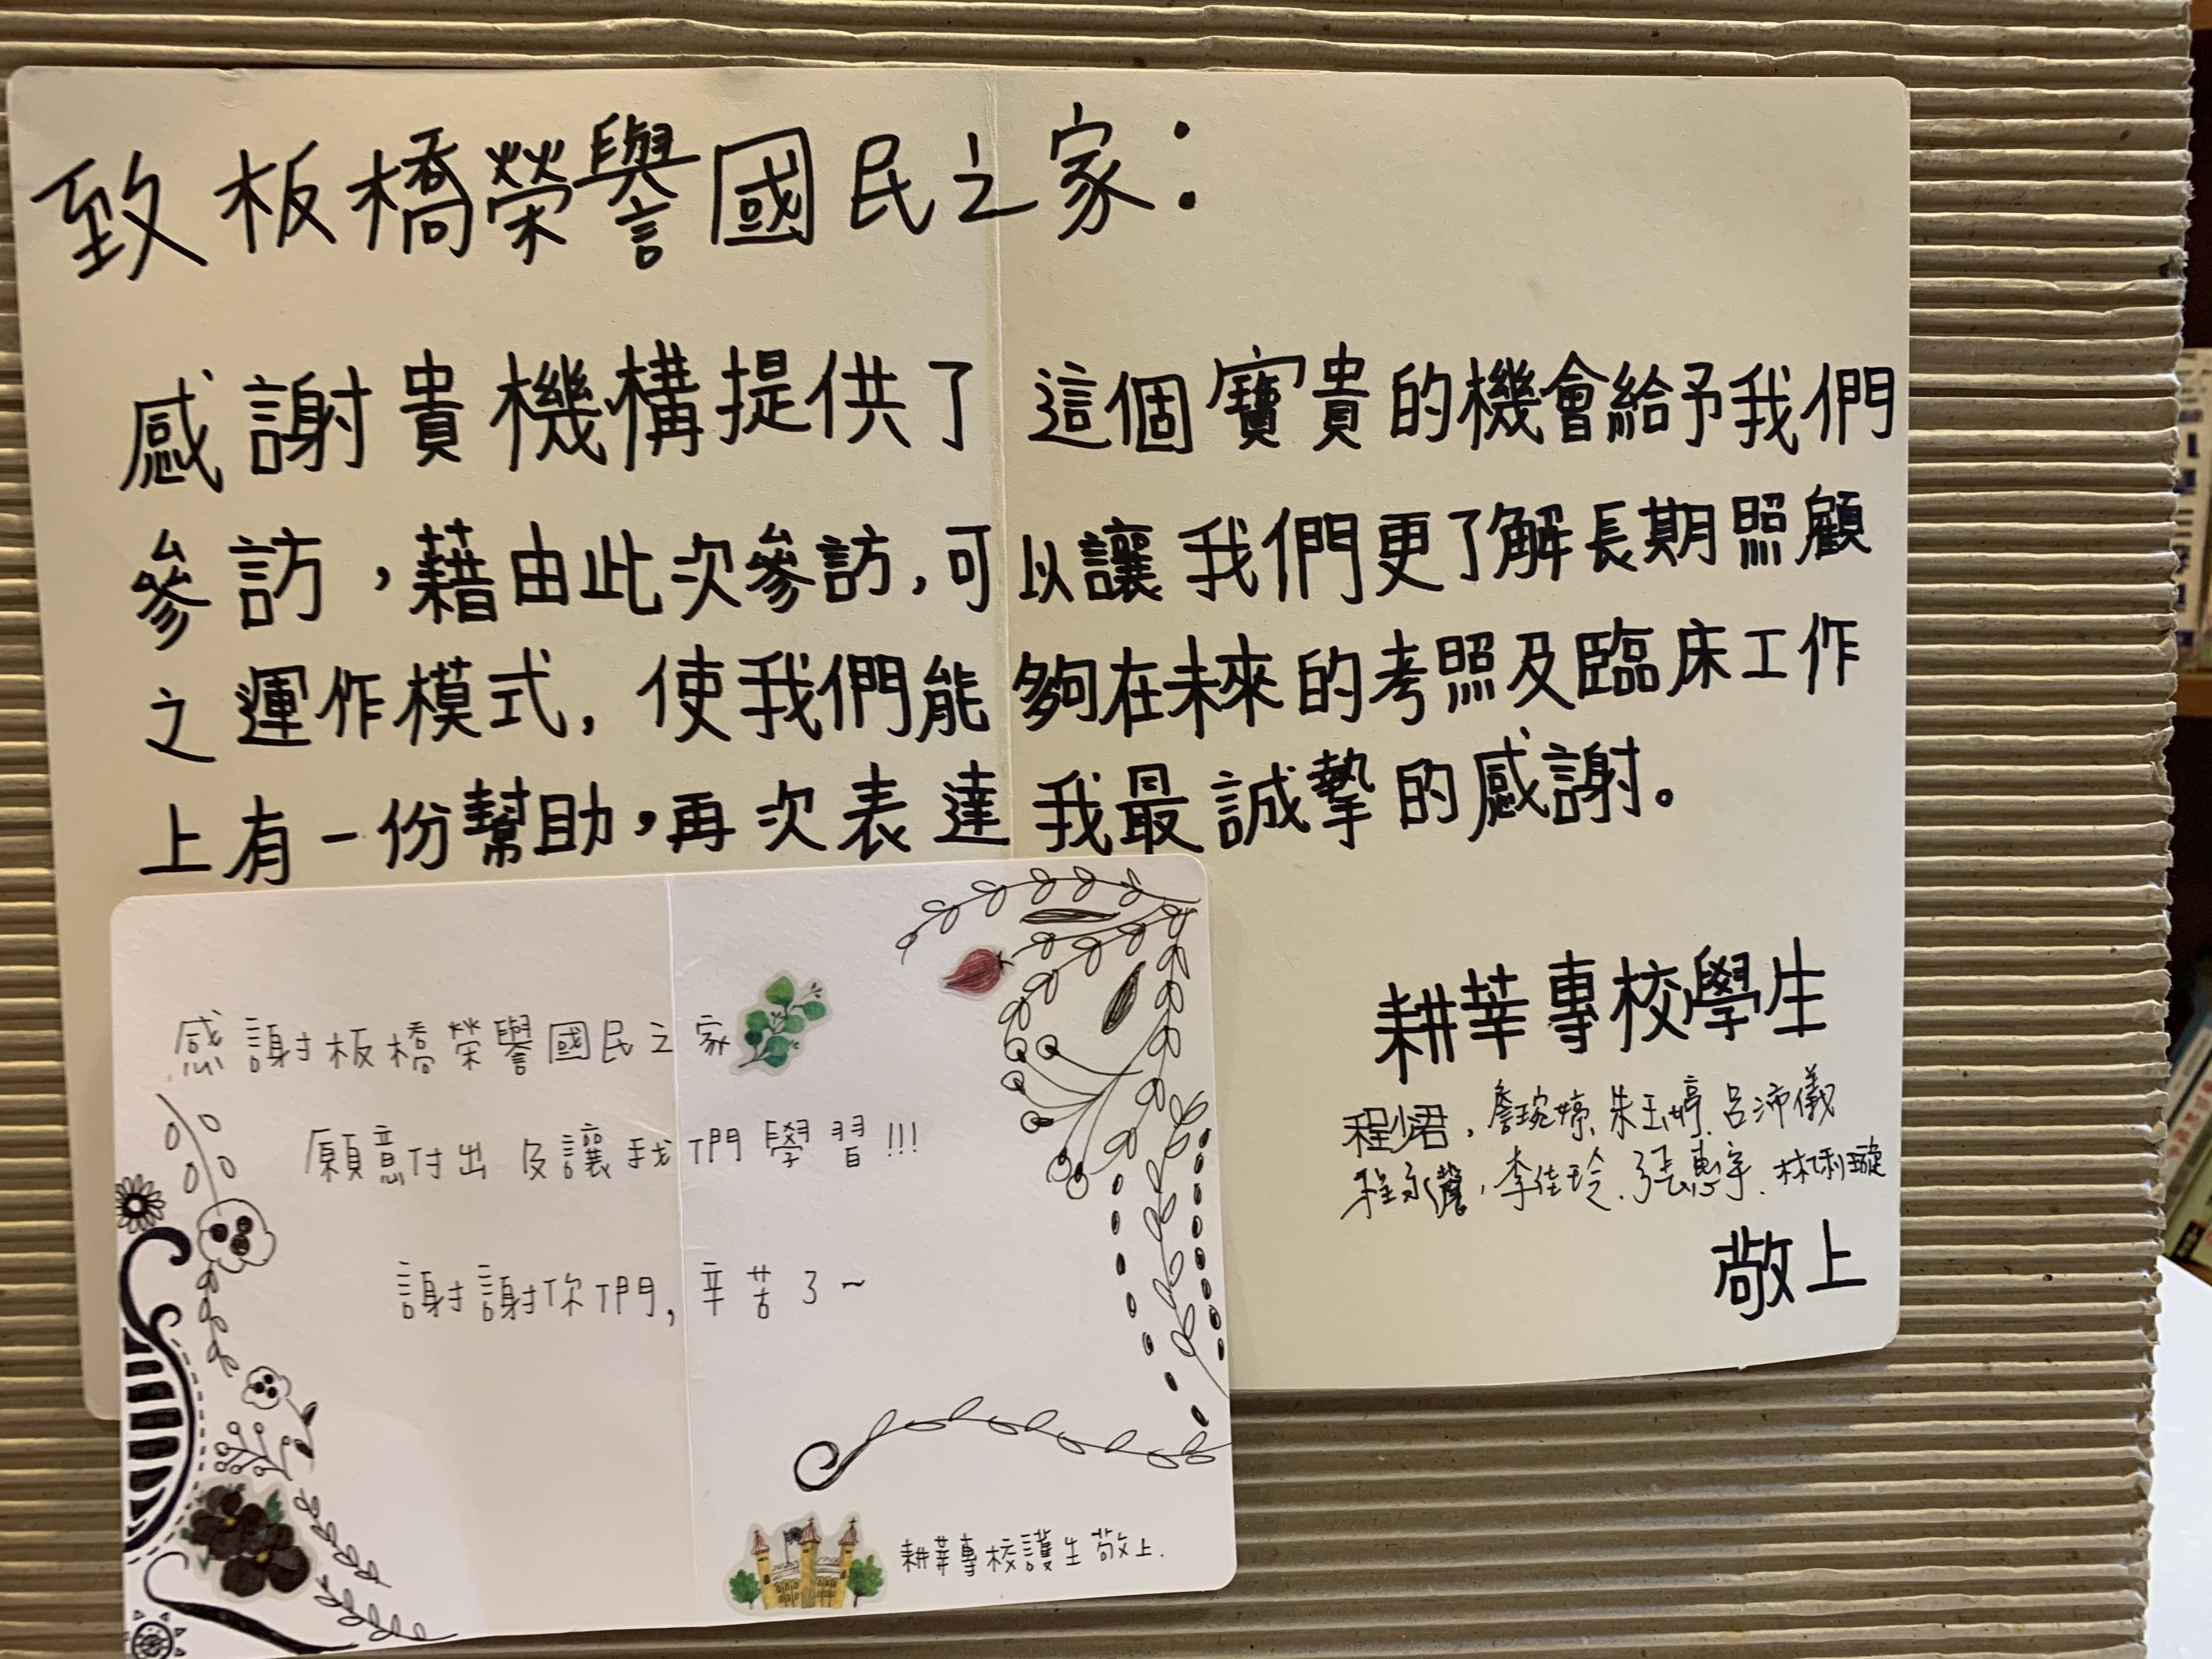 致板橋榮譽國民之家：
感謝貴機構提供了這個寶貴的機會給予我們
參訪，藉由此次參訪，可以讓我們更了解長期照顧
之運作模式，使我們能夠在未來的考照及臨床工作
上有一份幫助，再次表達我最誠摯的感謝。
耕莘專校學生
程少君，詹琬婷、朱玉婷、呂沛儀
程永馨，李佳玲、張惠宇、林琍璇
敬上
感謝板橋榮譽國民之家
願意付出及讓我們學習!!!
謝謝你們，辛苦了~
耕莘專校護生敬上.